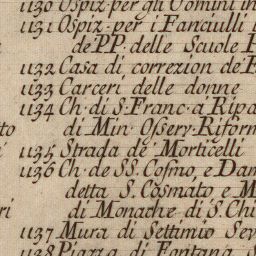 1130 Ospiz. per gli Uomini in
1131 Ospiz. per i Fanciulli
de PP. delle Scuole
1132 Casa di correzion de
1133 Carceri delle donne
1134 Ch. di S. Franc. a Ripa
to di Min. Osserv. Riform
1135 Strada de Morticelli
1136 Ch. de SS. Cosmo, e Dam
detta S. Cosmato, e M
ri di Monache di S. Chi
1137 Mura di Settimio Sev
1138 Piazza di Fontana